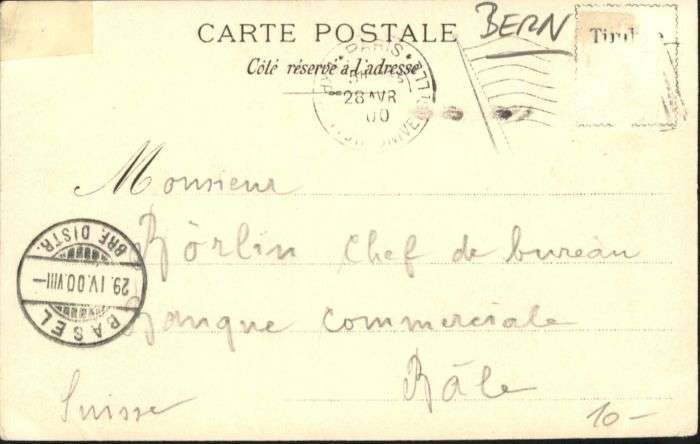 CARTE POSTALE
BERN
Côté réservé à l'adresse
PARIS
28 AVR
00
Monsieur
Börlin chef de bureau
Banque commerciale
Bâle
Suisse
BASEL
29. IV. 00. VIII —
BRF. DISTR.
10-